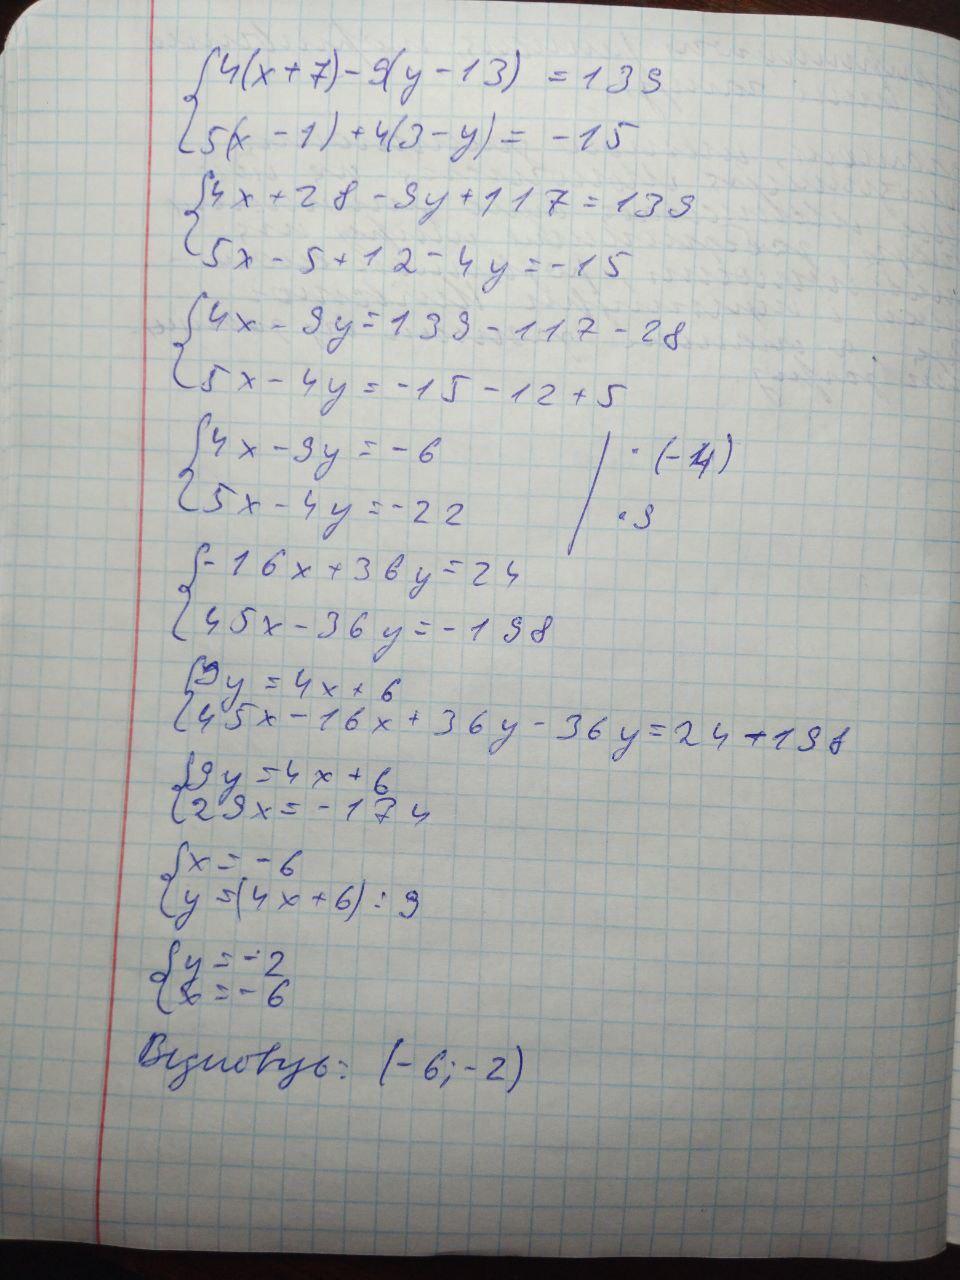 {4(x+7)-9(y-13) = 139
{5(x-1)+4(3-y) = -15
{4x+28-9y+117=139
{5x-5+12-4y=-15
{4x-9y=139-117-28
{5x-4y=-15-12+5
{4x-9y=-6 | ·(-4)
{5x-4y=-22 | ·9
{-16x+36y=24
{45x-36y=-198
{9y=4x+6
{45x-16x+36y-36y=24-198
{9y=4x+6
{29x=-174
{x=-6
{y=(4x+6):9
{y=-2
{x=-6
Відповідь: (-6;-2)